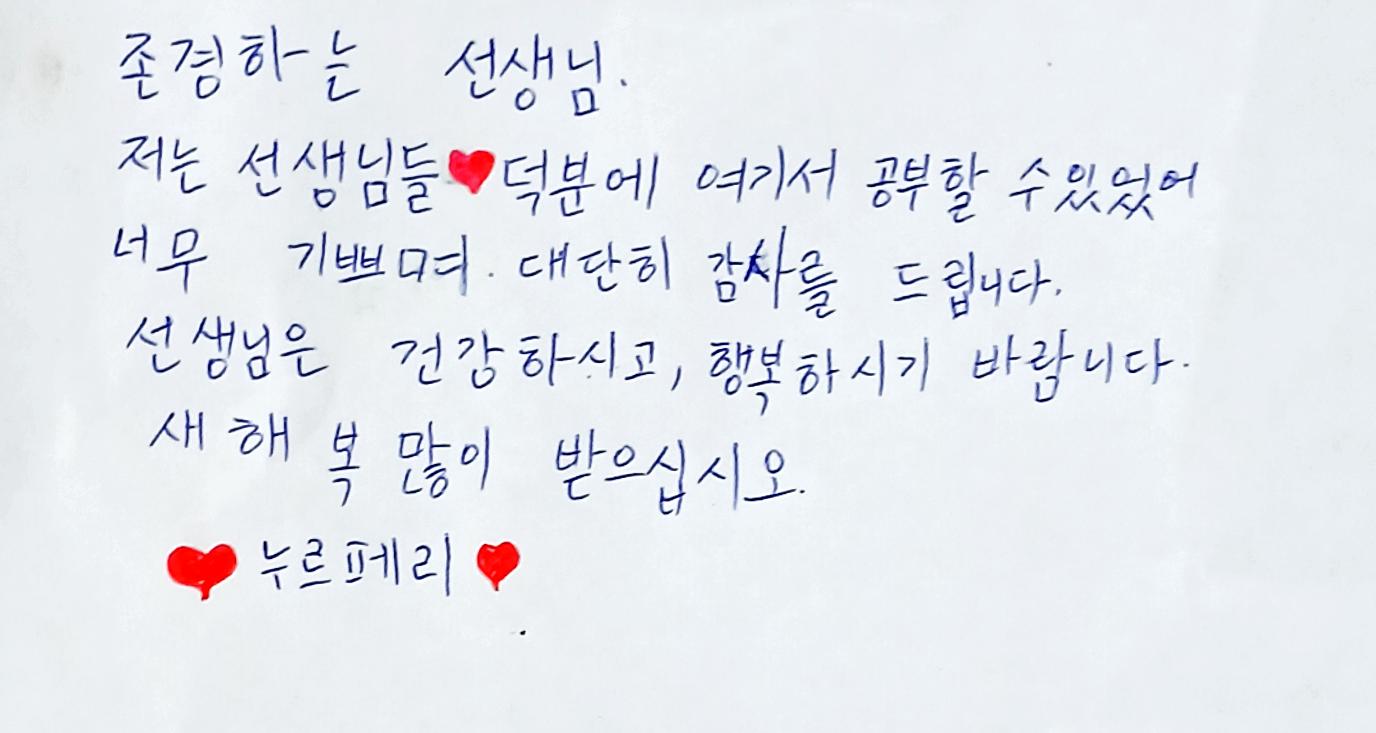 존경하는 선생님.
저는 선생님들♥덕분에 여기서 공부할 수있었어
너무 기쁘며. 대단히 감사를 드립니다.
선생님은 건강하시고, 행복하시기 바랍니다.
새해 복 많이 받으십시오.
♥ 누르페리 ♥